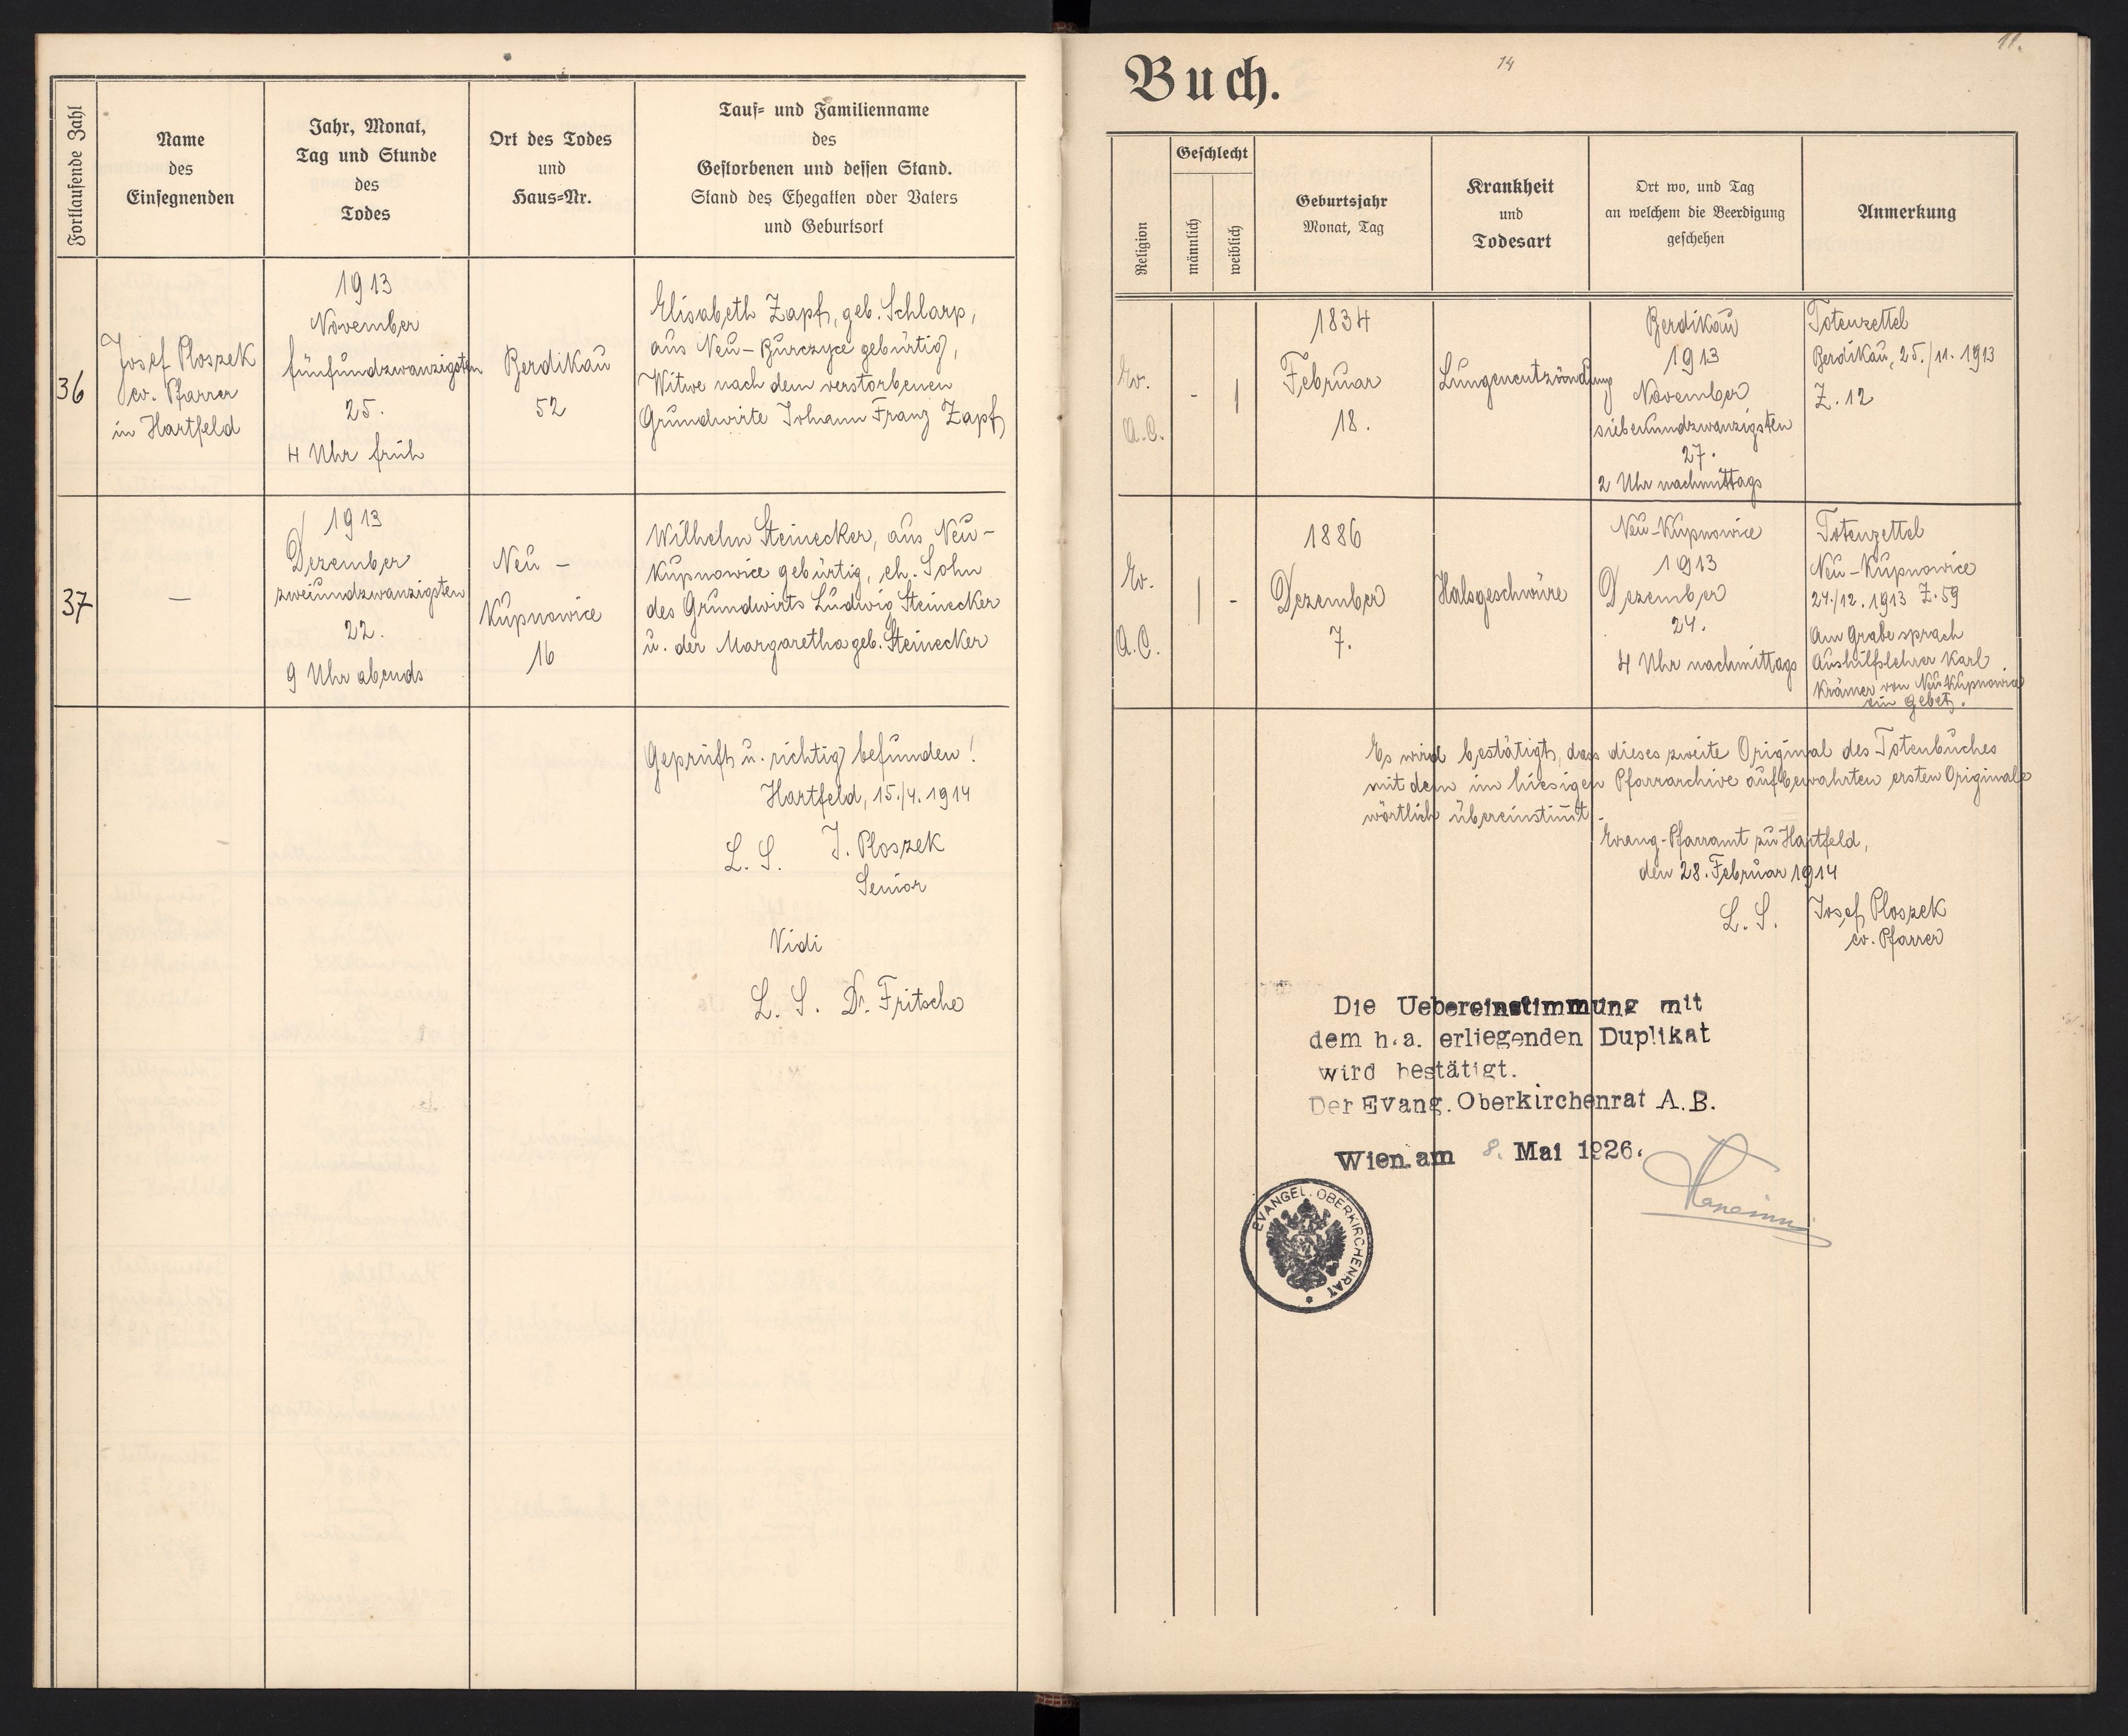 Fortlaufende Zahl
Name
des
Einsegnenden
Jahr, Monat,
Tag und Stunde
des
Todes
Ort des Todes
und
Haus=Nr.
Tauf= und Familienname
des
Gestorbenen und dessen Stand.
Stand des Ehegatten oder Vaters
und Geburtsort
36
Josef Ploszek
ev. Pfarrer
in Hartfeld
1913
November
fünfundzwanzigsten
25.
4 Uhr früh
Berdikau
52
Elisabeth Zapf, geb. Schlarp,
aus Neu-Burczyce gebürtig,
Witwe nach dem verstorbenen
Grundwirte Johann Franz Zapf
37
—
1913
Dezember
zweiundzwanzigsten
22.
9 Uhr abends
Neu-
Kupnowice
16
Wilhelm Steinecker, aus Neu-
Kupnowice gebürtig, eh. Sohn
des Grundwirts Ludwig Steinecker
u. der Margaretha geb. Steinecker
Geprüft u. richtig befunden!
Hartfeld, 15./4. 1914
L. S. J. Ploszek
Senior
Vidi
L. S. Dr. Fritsche
11.
14
Buch.
Religion
Geschlecht
männlich
weiblich
Geburtsjahr
Monat, Tag
Krankheit
und
Todesart
Ort wo, und Tag
an welchem die Beerdigung
geschehen
Anmerkung
Ev.
A.C.
-
1
1834
Februar
18.
Lungenentzündung
Berdikau
1913
November
siebenundzwanzigsten
27.
2 Uhr nachmittags
Totenzettel
Berdikau, 25./11. 1913
Z. 12
Ev.
A.C.
1
-
1886
Dezember
7.
Halsgeschwüre
Neu-Kupnowice
1913
Dezember
24.
4 Uhr nachmittags
Totenzettel
Neu-Kupnowice
24./12. 1913 Z. 59
Am Grabe sprach
Aushilfslehrer Karl
Krämer von Neu Kupnowice
ein Gebet.
Es wird bestätigt, dass dieses zweite Original des Totenbuches
mit dem im hiesigen Pfarrarchive aufbewahrten ersten Originale
wörtlich übereinstim̄t.
Evang. Pfarramt zu Hartfeld,
den 28. Februar 1914
L. S. Josef Ploszek
ev. Pfarrer
Die Uebereinstimmung mit
dem h.a. erliegenden Duplikat
wird bestätigt.
Der Evang. Oberkirchenrat A.B.
Wien am 8. Mai 1926.
EVANGEL. OBERKIRCHENRAT